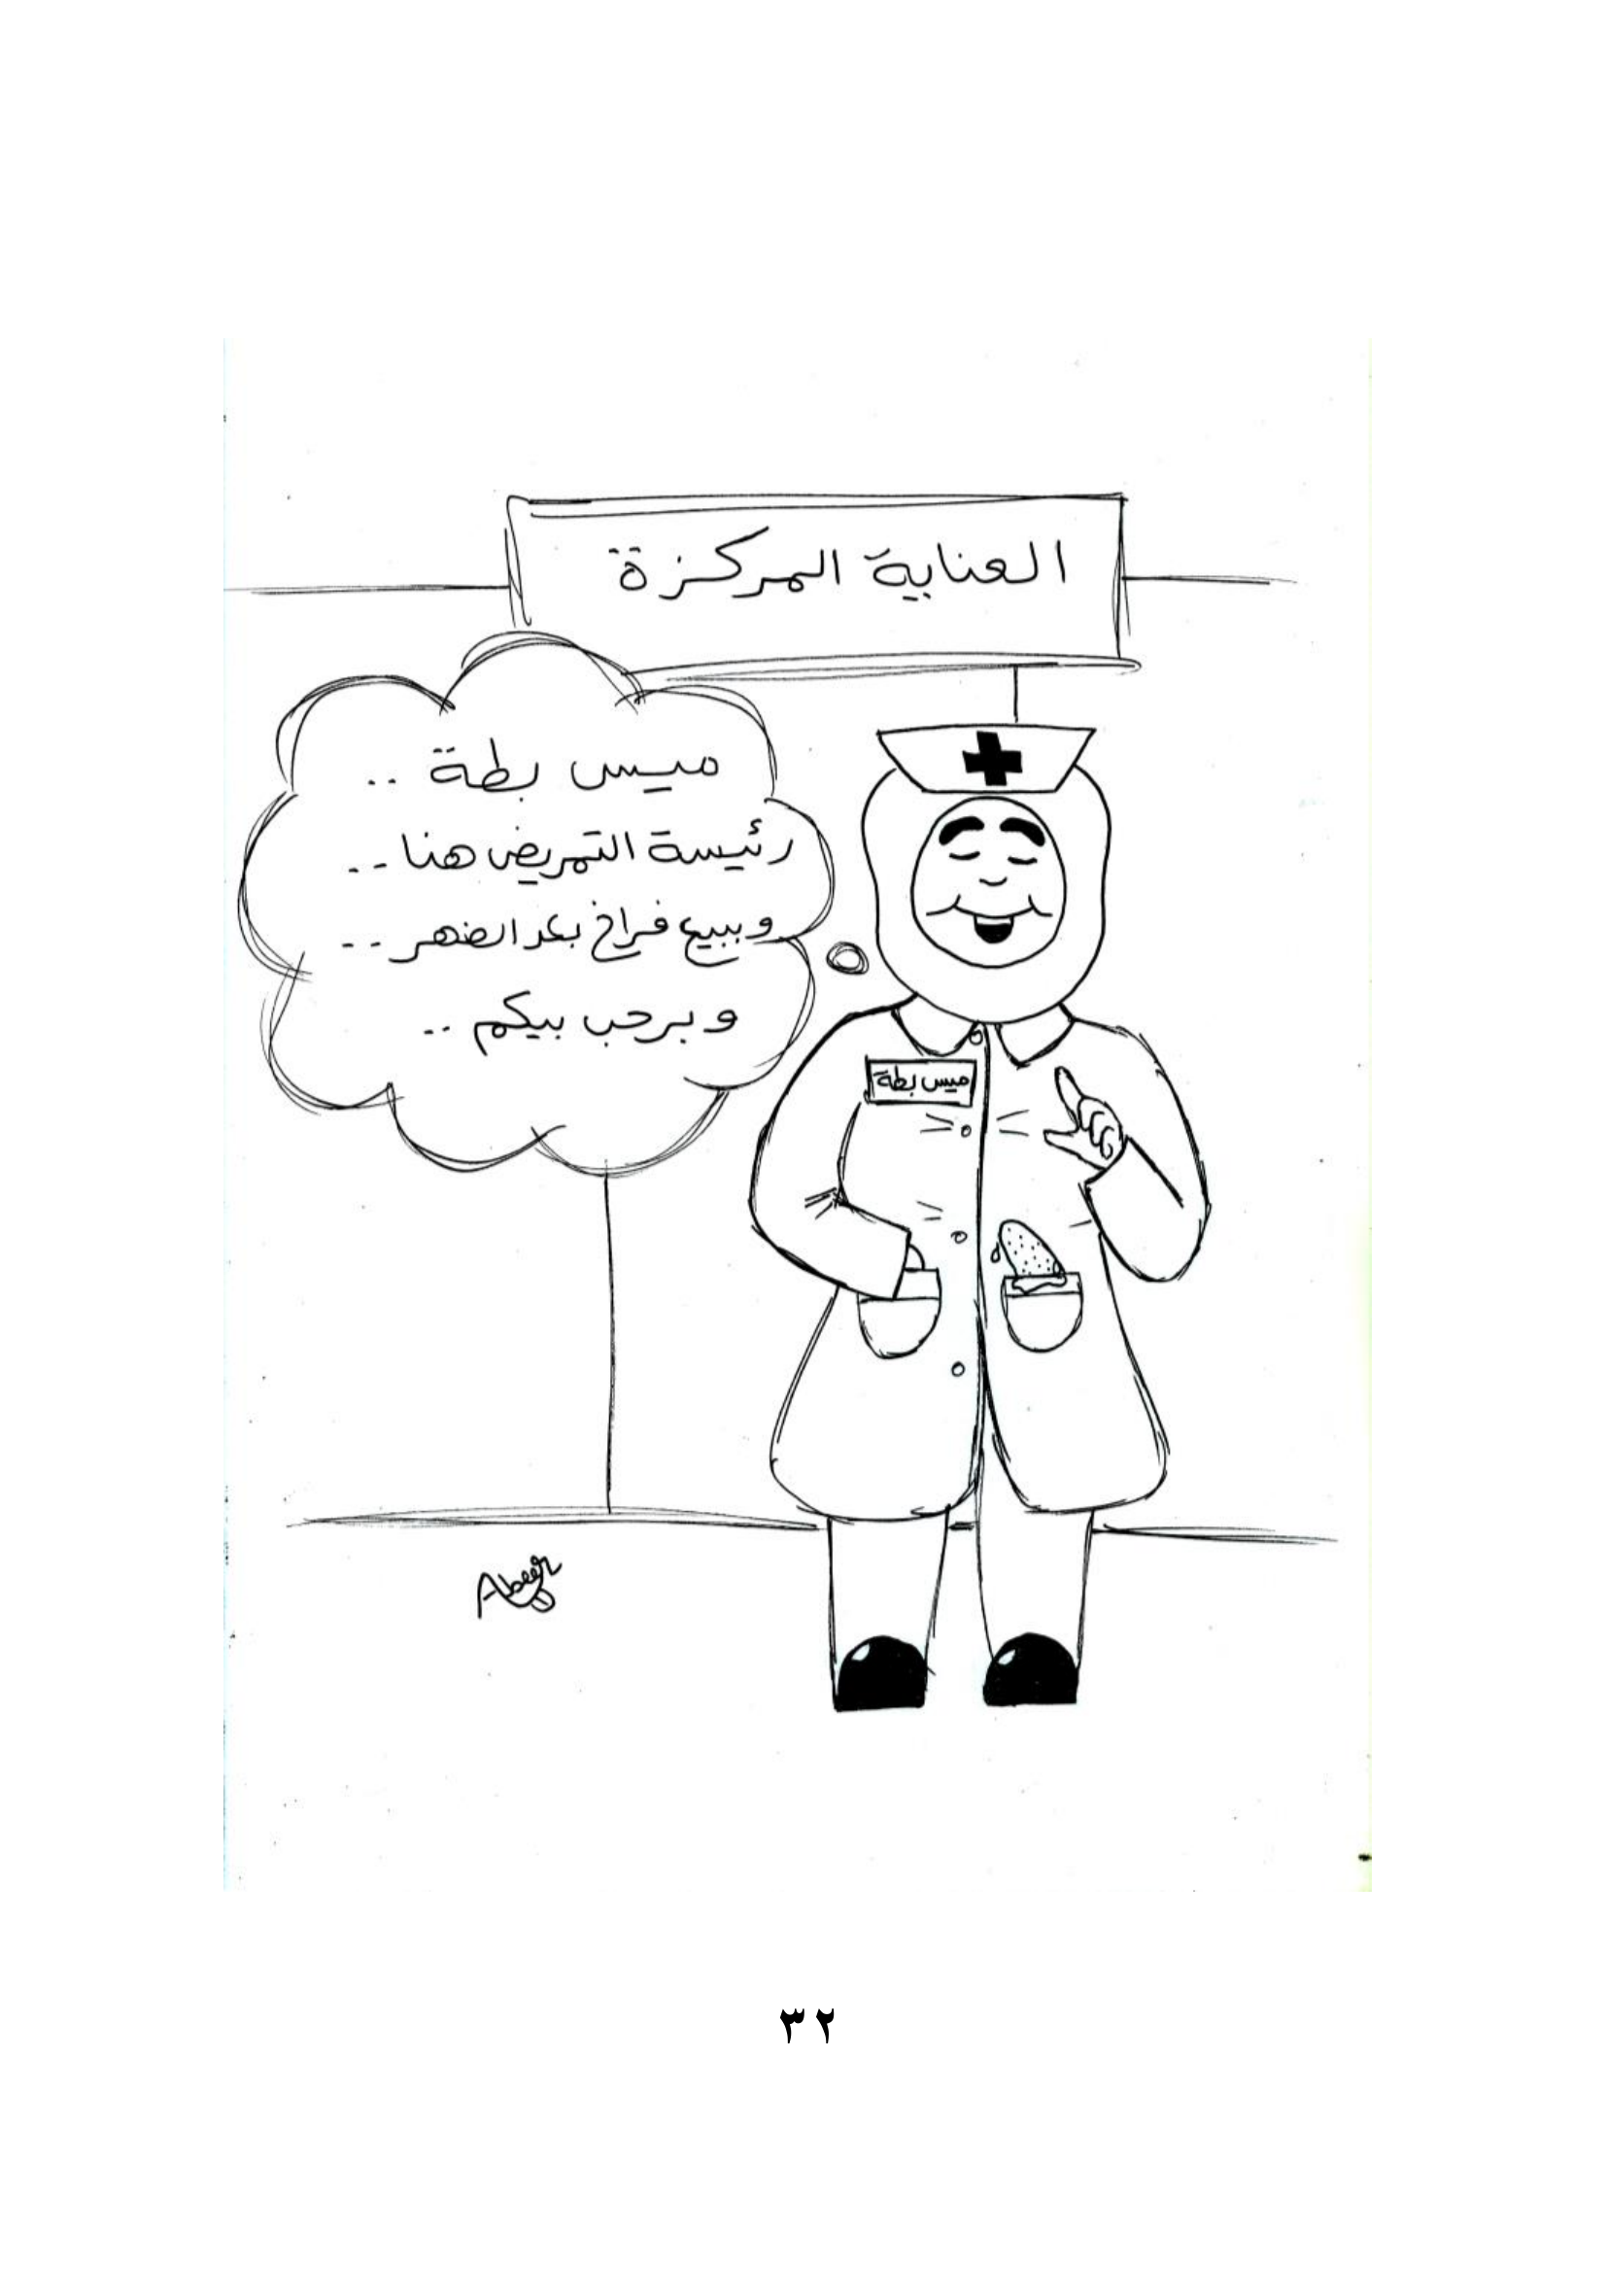 العناية المركزة
ميس بطة ..
رئيسة التمريض هنا ..
وببيع فراخ بعد الضهر ..
وبرحب بيكم ..
ميس بطة
Abeer
٣٢